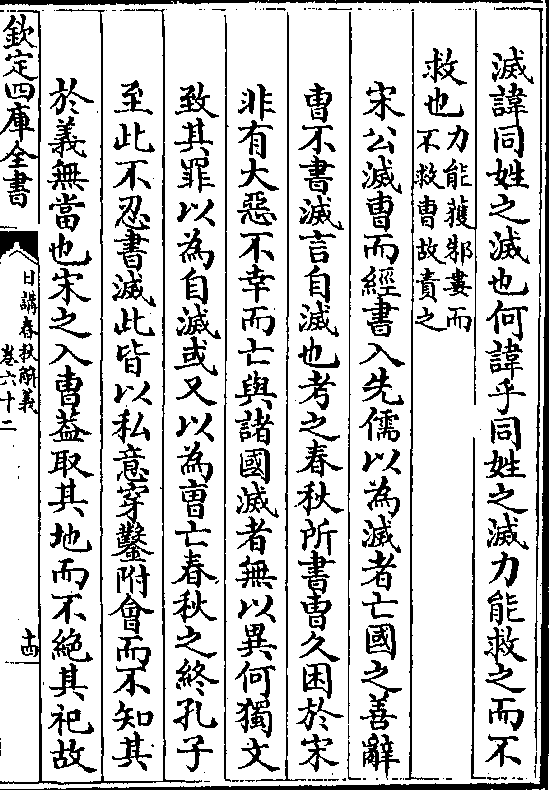 滅諱同姓之滅也何諱乎同姓之滅力能救之而不
救也力能獲邾婁而
不救曹故責之
宋公滅曹而經書入先儒以為滅者亡國之善辭
曹不書滅言自滅也考之春秋所書曹久困於宋
非有大惡不幸而亡與諸國滅者無以異何獨文
致其罪以為自滅或又以為曹亡春秋之終孔子
至此不忍書滅此皆以私意穿鑿附會而不知其
於義無當也宋之入曹葢取其地而不絕其祀故
欽定四庫全書
日講春秋解義
卷六十二
十四